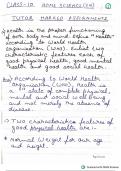 CLASS-10 HOME SCIENCE (216)
TUTOR MARKED ASSIGNMENTS
Health is the proper condition of
our body and mind. Define "Health"
according to World Health
Organization (WHO). Enlist two
characteristic features each of
good physical health, good mental
health and good social health.
Ans According to World Health
Organization (WHO), Health is
a state of complete physical,
mental and social well being
and not merely the absence of
disease.
Two characteristics features of
good physical health are:-
Normal weight for our age
and height.